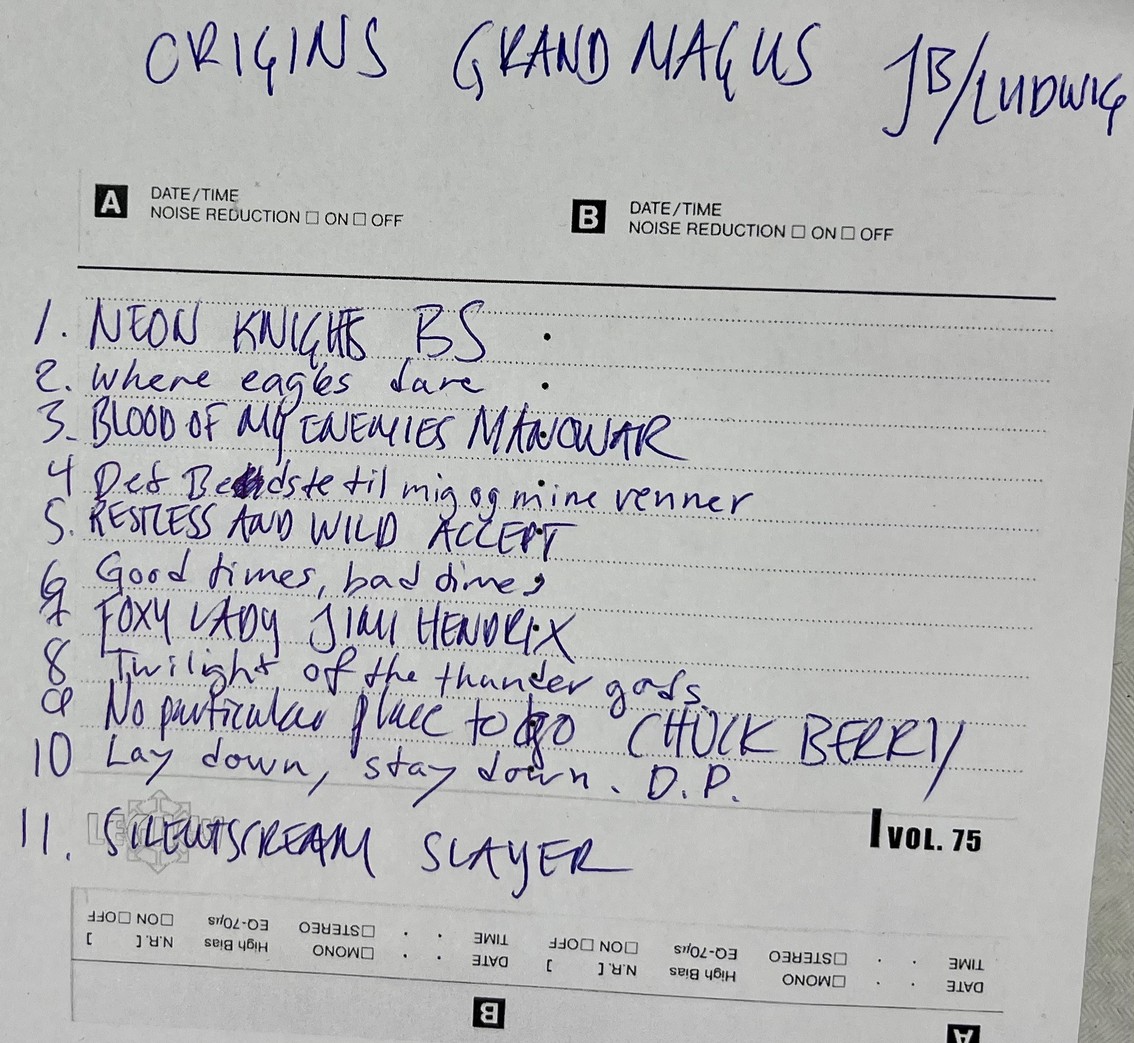 ORIGINS GRAND MAGUS JB/LUDWIG
A DATE/TIME
NOISE REDUCTION ☐ ON ☐ OFF
B DATE/TIME
NOISE REDUCTION ☐ ON ☐ OFF
1. NEON KNIGHTS BS
2. Where eagles dare
3. BLOOD OF MY ENEMIES MANOWAR
4 Det Bedste til mig og mine venner
5. RESTLESS AND WILD ACCEPT
6 Good times, bad times
7 FOXY LADY JIMI HENDRIX
8 Twilight of the thunder gods.
9 No particular place to go CHUCK BERRY
10 Lay down, stay down. D.P.
VOL. 75
11. SILENT SCREAM SLAYER
A
DATE
TIME
☐ MONO
☐ STEREO
High Bias
EQ-70µs
N.R. [ ]
☐ ON ☐ OFF
B
DATE
TIME
☐ MONO
☐ STEREO
High Bias
EQ-70µs
N.R. [ ]
☐ ON ☐ OFF